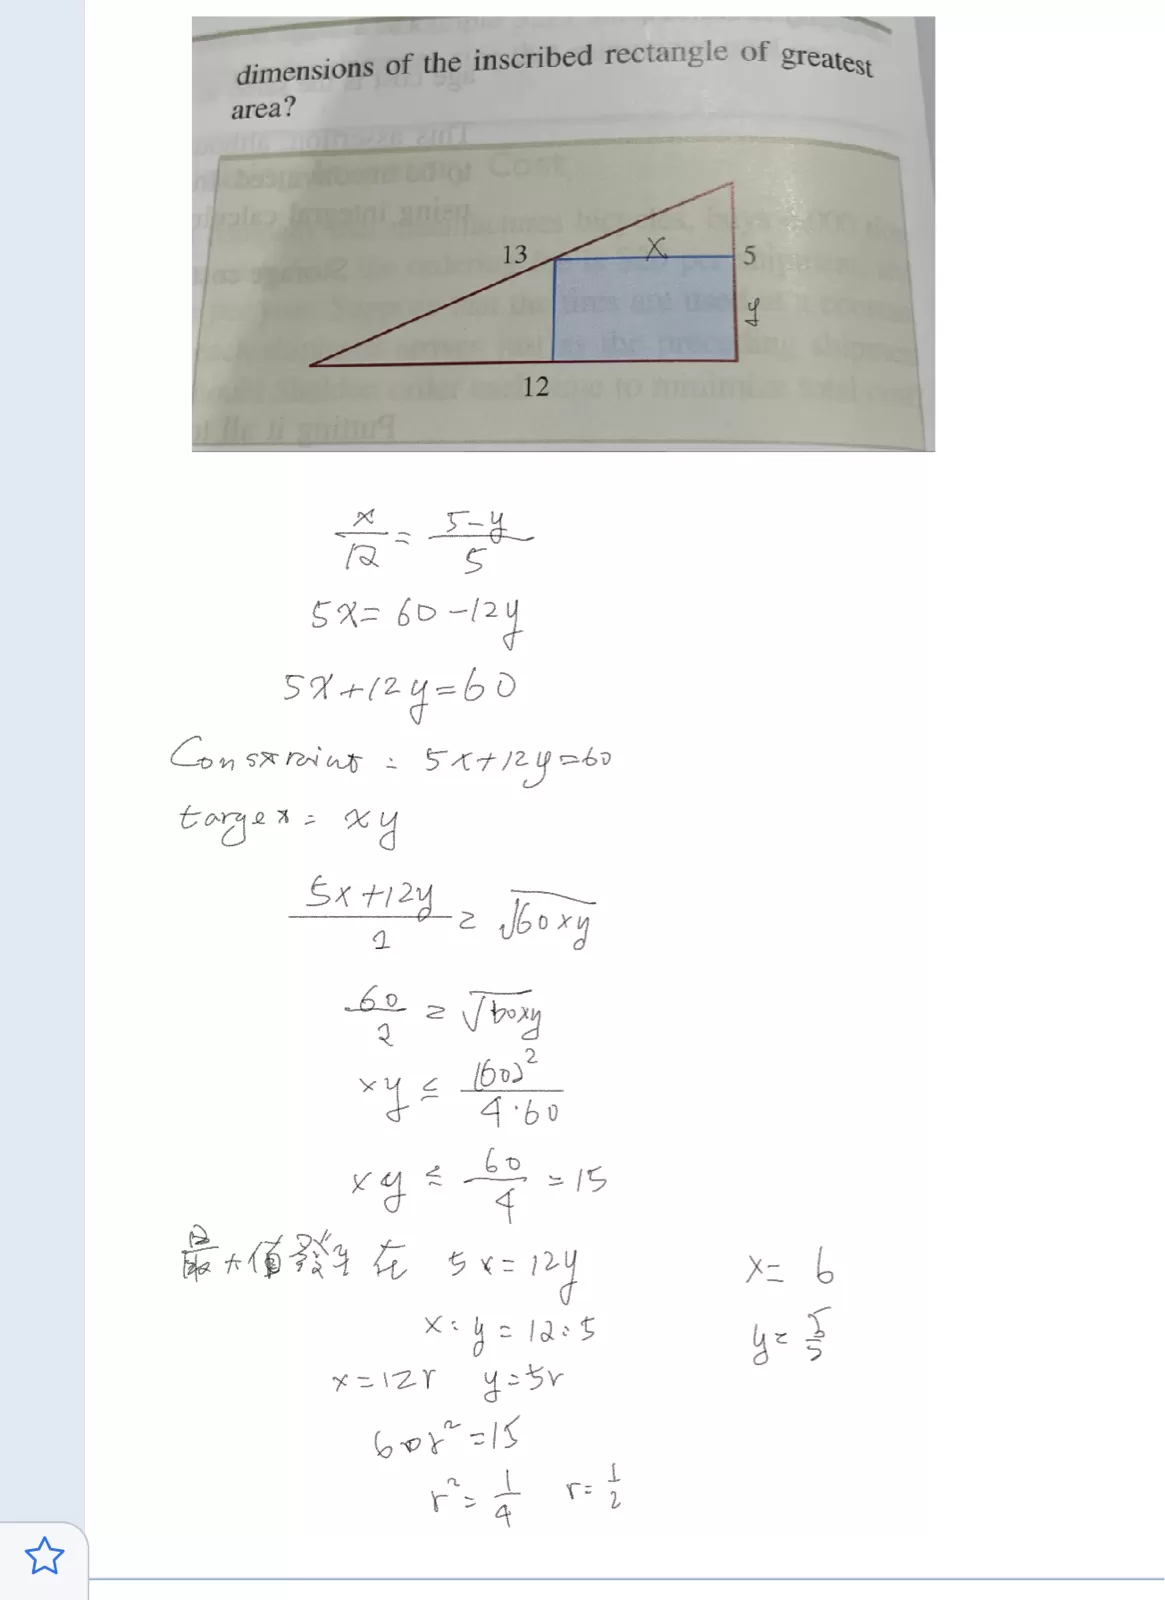 dimensions of the inscribed rectangle of greatest
area?
13
x
5
y
12
x/12 = (5-y)/5
5x = 60 - 12y
5x + 12y = 60
Constraint : 5x + 12y = 60
target : xy
(5x + 12y)/2 ≥ √60xy
60/2 ≥ √60xy
xy ≤ (60)²/(4·60)
xy ≤ 60/4 = 15
最大值發生在 5x = 12y
x = 6
x : y = 12 : 5
x = 12r y = 5r
60r² = 15
r² = 1/4 r = 1/2